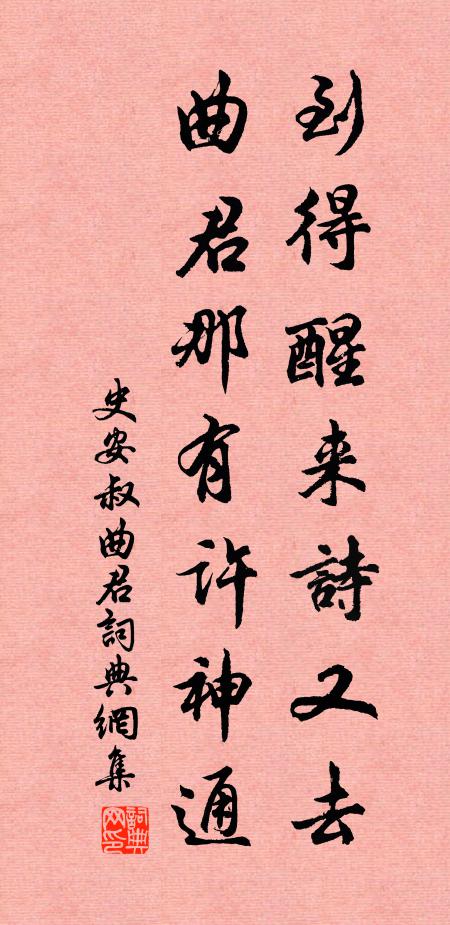 到得醒来詩又去
曲君那有许神通
史安叔曲君詞典網集
詞典网印